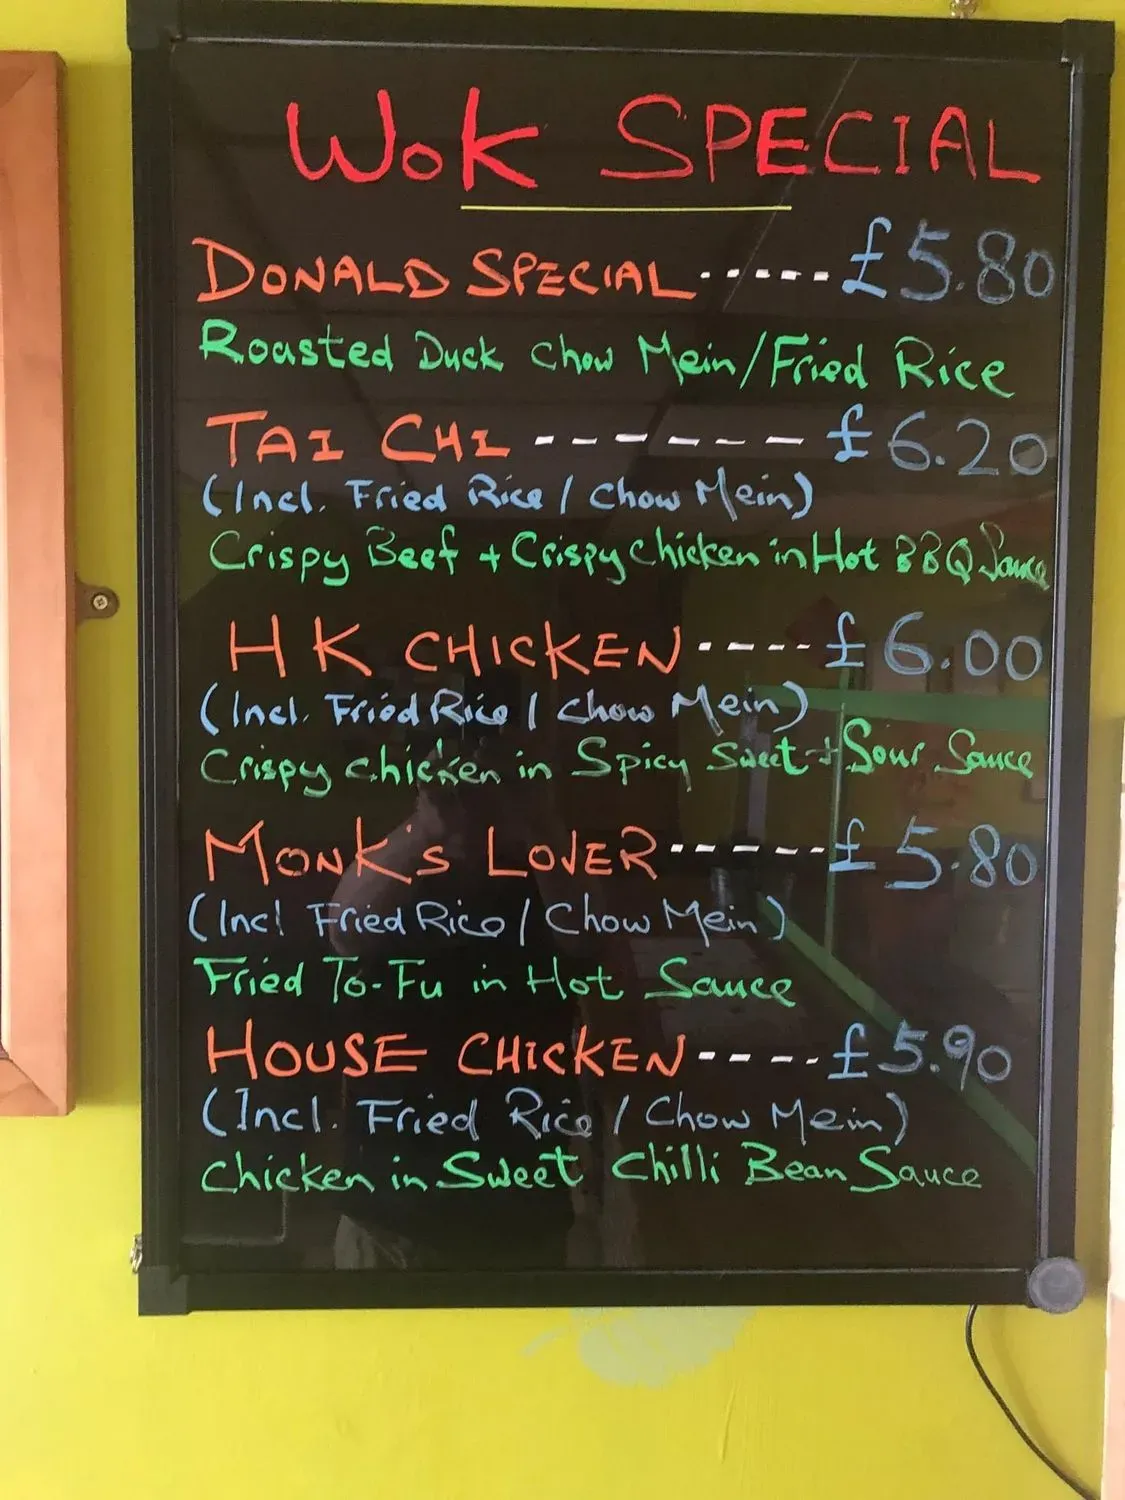 WoK SPECIAL
DONALD SPECIAL ----- £5.80
Roasted Duck Chow Mein/Fried Rice
TAI CHI ------- £6.20
(Incl. Fried Rice / Chow Mein)
Crispy Beef + Crispy Chicken in Hot BBQ Sauce
HK CHICKEN ---- £6.00
(Incl. Fried Rice / Chow Mein)
Crispy Chicken in Spicy Sweet + Sour Sauce
MONK's LOVER ----- £5.80
(Incl Fried Rice / Chow Mein)
Fried To-Fu in Hot Sauce
HOUSE CHICKEN ---- £5.90
(Incl. Fried Rice / Chow Mein)
Chicken in Sweet Chilli Bean Sauce